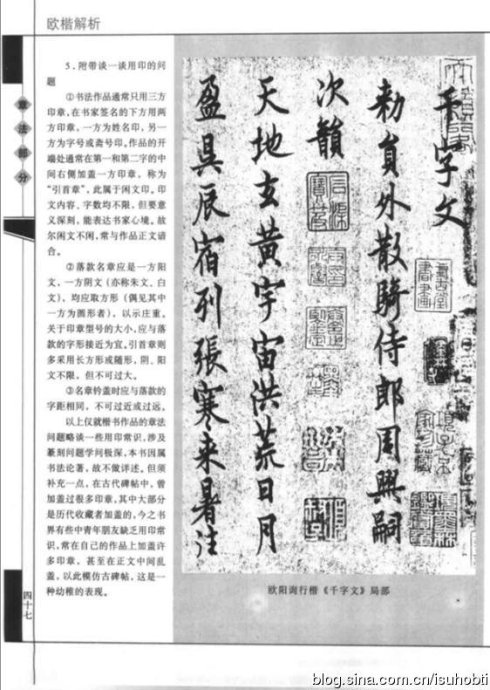 欧楷解析
章法部分
5、附带谈一谈用印的问
题
①书法作品通常只用三方
印章,在书家签名的下方用两
方印章,一方为姓名印,另一
方为字号或斋号印。作品的开
端处通常在第一和第二字的中
间右侧加盖一方印章,称为
“引首章”,此属于闲文印,印
文内容、字数均不限,但要意
义深刻,能表达书家心境,故
尔闲文不闲,常与作品正文谙
合。
②落款名章应是一方阳
文,一方阴文(亦称朱文、白
文),均应取方形(偶见其中
一方为圆形者),以示庄重,
关于印章型号的大小,应与落
款的字形接近为宜,引首章则
多采用长方形或随形,阴、阳
文不限,但不可过大。
③名章钤盖时应与落款的
字距相同,不可过近或过远。
以上仅就楷书作品的章法
问题略谈一些用印常识,涉及
篆刻问题学问极深,本书因属
书法论著,故不做详述,但须
补充一点,在古代碑帖中,曾
加盖过很多印章,其中大部分
是历代收藏者加盖的,今之书
界有些中青年朋友缺乏用印常
识,常在自己的作品上加盖许
多印章,甚至在正文中间乱
盖,以此模仿古碑帖,这是一
种幼稚的表现。
四十七
千字文
勅員外散騎侍郎周興嗣
次韻
天地玄黃宇宙洪荒日月
盈昃辰宿列張寒来暑往
欧阳询行楷《千字文》局部
blog.sina.com.cn/isuhobti